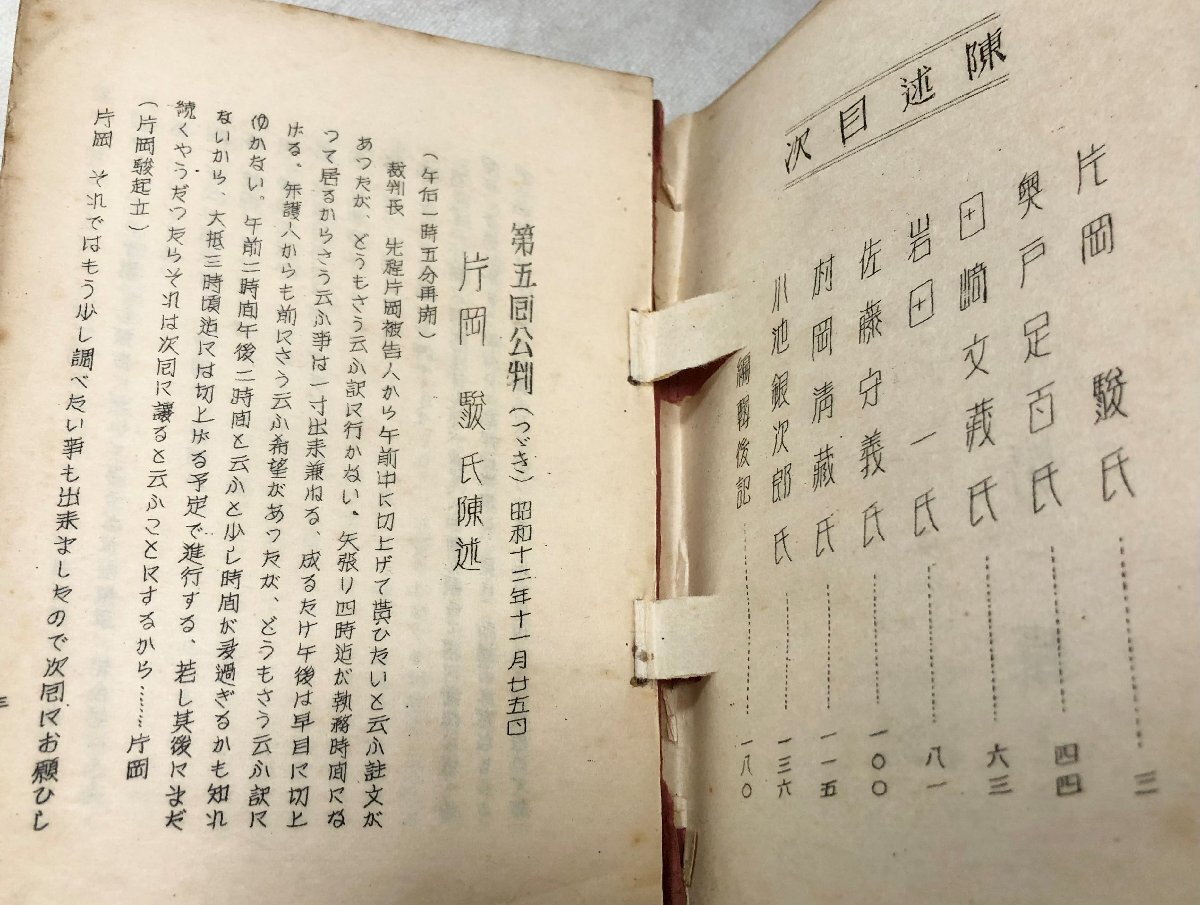 陳述目次
片岡 駿氏 三
奥戸足百氏 四四
田﨑文蔵氏 六三
岩田一氏 八一
佐藤守義氏 一〇〇
村岡清蔵氏 一一五
小池銀次郎氏 一三六
編輯後記 一八〇
第五回公判(つゞき)昭和十二年十一月廿五日
片岡 駿氏陳述
(午后一時五分再開)
裁判長 先程片岡被告人から午前中に切上げて貰ひたいと云ふ註文が
あつたが、どうもさう云ふ訳に行かない。矢張り四時迄が執務時間にな
つて居るからさう云ふ事は一寸出来兼ねる、成るたけ午後は早目に切上
げる。弁護人からも前にさう云ふ希望があつたが、どうもさう云ふ訳に
ゆかない。午前二時間午後二時間と云ふと少し時間が長過ぎるかも知れ
ないから、大抵三時頃迄には切上げる予定で進行する、若し其後にまだ
続くやうだつたらそれは次回に譲ると云ふことにするから……片岡
(片岡駿起立)
片岡 それではもう少し調べたい事も出来ましたので次回にお願ひし
三